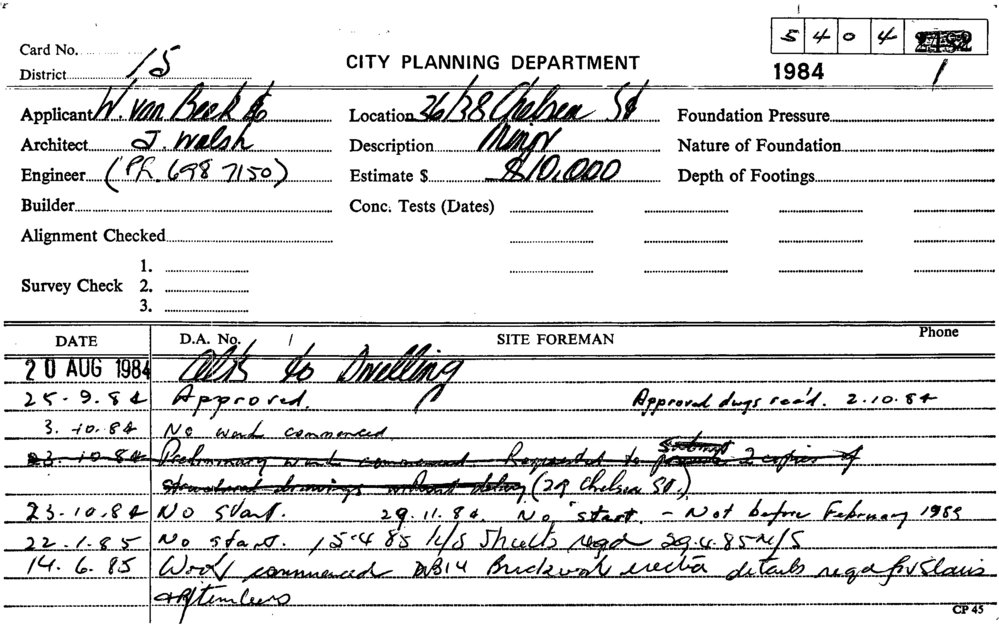 5 4 0 4
Card No.
District 15
CITY PLANNING DEPARTMENT
1984 1
Applicant W. van Beek
Location 36/38 Chelsea St
Foundation Pressure
Architect J. Walsh
Description Minor
Nature of Foundation
Engineer (Ph. 698 7150)
Estimate $ $10,000
Depth of Footings
Builder
Conc. Tests (Dates)
Alignment Checked
1.
Survey Check 2.
3.
DATE D.A. No. SITE FOREMAN Phone
20 AUG 1984 Alts to Dwelling
25.9.84 Approved. Approved dwgs rec'd. 2.10.84
3.10.84 No work commenced
23.10.84 Preliminary work commenced Requested to submit 2 copies of
structural drawings without delay (29 Chelsea St.)
23.10.84 No start. 29.11.84. No start. - Not before February 1985
22.1.85 No start. 15-4 85 N/S Sheets reqd 29.4.85 N/S
14.6.85 Work commenced Brickwork details reqd for
CP 45